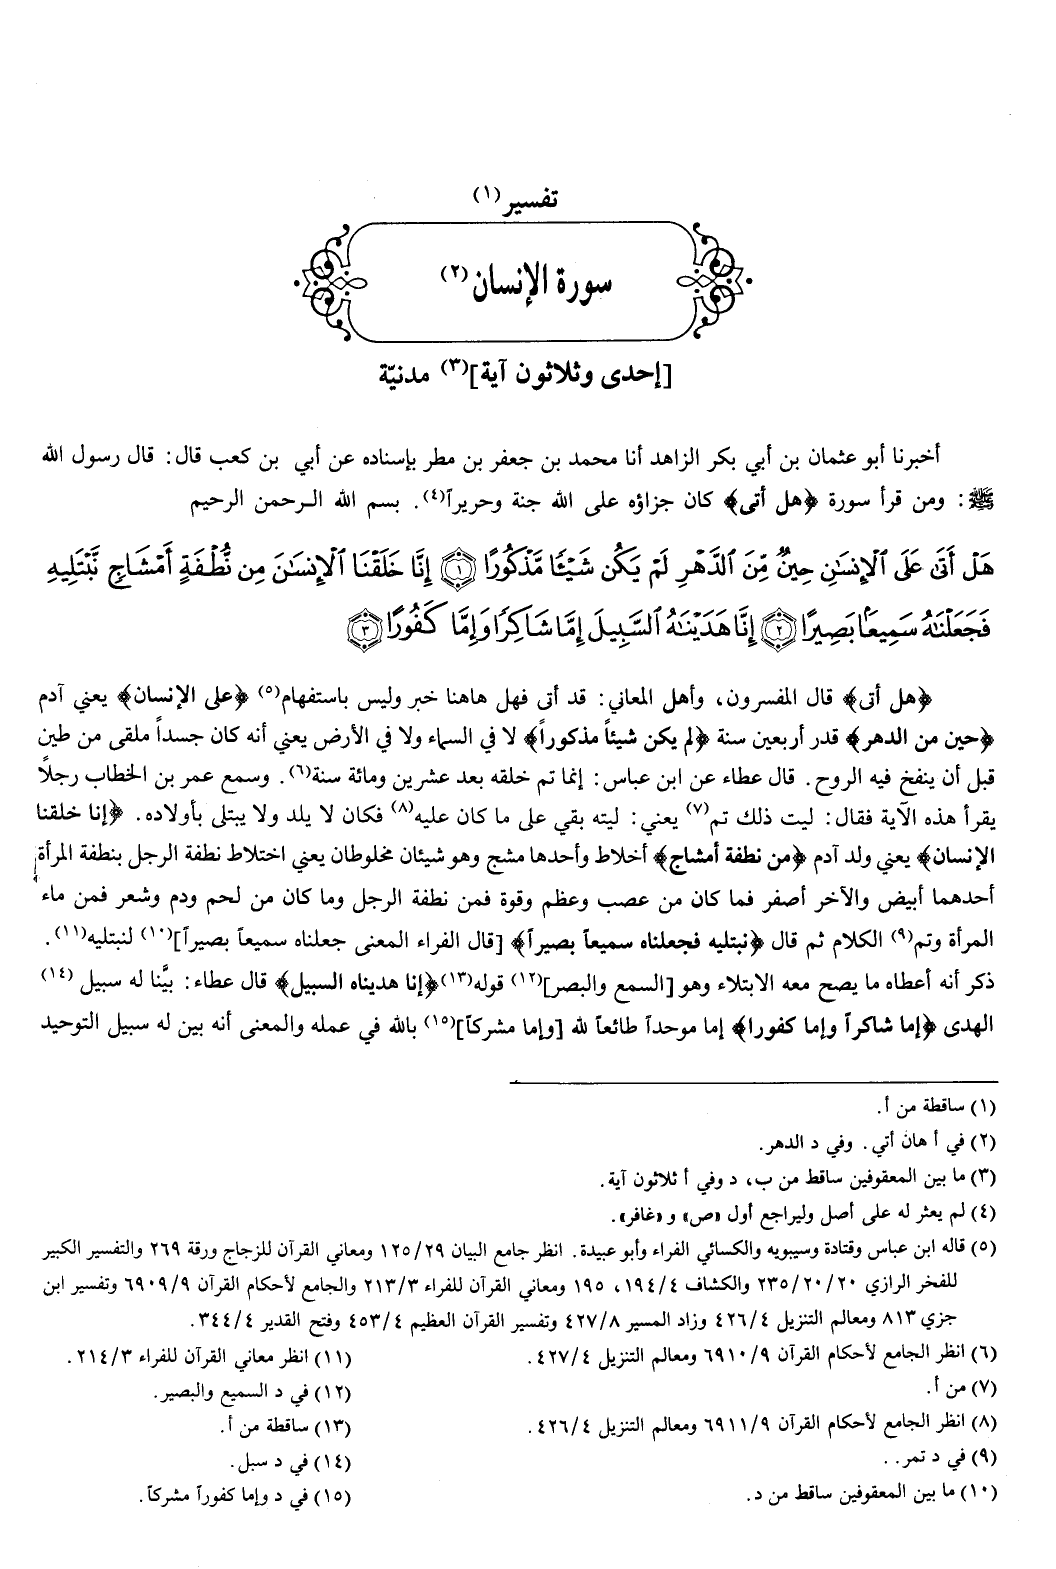 تفسير(١)
سورة الإنسان(٢)
[إحدى وثلاثون آية](٣) مدنيّة
أخبرنا أبو عثمان بن أبي بكر الزاهد أنا محمد بن جعفر بن مطر بإسناده عن أبي بن كعب قال: قال رسول الله
ﷺ: ومن قرأ سورة ﴿هل أتى﴾ كان جزاؤه على الله جنة وحريراً(٤). بسم الله الـرحمن الرحيم
هَلْ أَتَىٰ عَلَى ٱلْإِنسَٰنِ حِينٌ مِّنَ ٱلدَّهْرِ لَمْ يَكُن شَيْـًٔا مَّذْكُورًا ١ إِنَّا خَلَقْنَا ٱلْإِنسَٰنَ مِن نُّطْفَةٍ أَمْشَاجٍ نَّبْتَلِيهِ
فَجَعَلْنَٰهُ سَمِيعًۢا بَصِيرًا ٢ إِنَّا هَدَيْنَٰهُ ٱلسَّبِيلَ إِمَّا شَاكِرًا وَإِمَّا كَفُورًا ٣
﴿هل أتى﴾ قال المفسرون، وأهل المعاني: قد أتى فهل هاهنا خبر وليس باستفهام(٥) ﴿على الإنسان﴾ يعني آدم
﴿حين من الدهر﴾ قدر أربعين سنة ﴿لم يكن شيئاً مذكوراً﴾ لا في السماء ولا في الأرض يعني أنه كان جسداً ملقى من طين
قبل أن ينفخ فيه الروح. قال عطاء عن ابن عباس: إنما تم خلقه بعد عشرين ومائة سنة(٦). وسمع عمر بن الخطاب رجلاً
يقرأ هذه الآية فقال: ليت ذلك تم(٧) يعني: ليته بقي على ما كان عليه(٨) فكان لا يلد ولا يبتلى بأولاده. ﴿إنا خلقنا
الإنسان﴾ يعني ولد آدم ﴿من نطفة أمشاج﴾ أخلاط وأحدها مشج وهو شيئان مخلوطان يعني اختلاط نطفة الرجل بنطفة المرأة
أحدهما أبيض والآخر أصفر فما كان من عصب وعظم وقوة فمن نطفة الرجل وما كان من لحم ودم وشعر فمن ماء
المرأة وتم(٩) الكلام ثم قال ﴿نبتليه فجعلناه سميعاً بصيراً﴾ [قال الفراء المعنى جعلناه سميعاً بصيراً](١٠) لنبتليه(١١).
ذكر أنه أعطاه ما يصح معه الابتلاء وهو [السمع والبصر](١٢) قوله(١٣) ﴿إنا هديناه السبيل﴾ قال عطاء: بيَّنا له سبيل (١٤)
الهدى ﴿إما شاكراً وإما كفورا﴾ إما موحداً طائعاً لله [وإما مشركاً](١٥) بالله في عمله والمعنى أنه بين له سبيل التوحيد
(١) ساقطة من أ.
(٢) في أ هان أتي. وفي د الدهر.
(٣) ما بين المعقوفين ساقط من ب، د وفي أ ثلاثون آية.
(٤) لم يعثر له على أصل وليراجع أول «ص» و «غافر».
(٥) قاله ابن عباس وقتادة وسيبويه والكسائي الفراء وأبو عبيدة. انظر جامع البيان ١٢٥/٢٩ ومعاني القرآن للزجاج ورقة ٢٦٩ والتفسير الكبير
للفخر الرازي ٢٣٥/٢٠/٢٠ والكشاف ١٩٤/٤، ١٩٥ ومعاني القرآن للفراء ٢١٣/٣ والجامع لأحكام القرآن ٦٩٠٩/٩ وتفسير ابن
جزي ٨١٣ ومعالم التنزيل ٤٢٦/٤ وزاد المسير ٤٢٧/٨ وتفسير القرآن العظيم ٤٥٣/٤ وفتح القدير ٣٤٤/٤.
(٦) انظر الجامع لأحكام القرآن ٦٩١٠/٩ ومعالم التنزيل ٤٢٧/٤.
(٧) من أ.
(٨) انظر الجامع لأحكام القرآن ٦٩١١/٩ ومعالم التنزيل ٤٢٦/٤.
(٩) في د تمر. .
(١٠) ما بين المعقوفين ساقط من د.
(١١) انظر معاني القرآن للفراء ٢١٤/٣.
(١٢) في د السميع والبصير.
(١٣) ساقطة من أ.
(١٤) في د سبل.
(١٥) في د وإما كفوراً مشركاً.